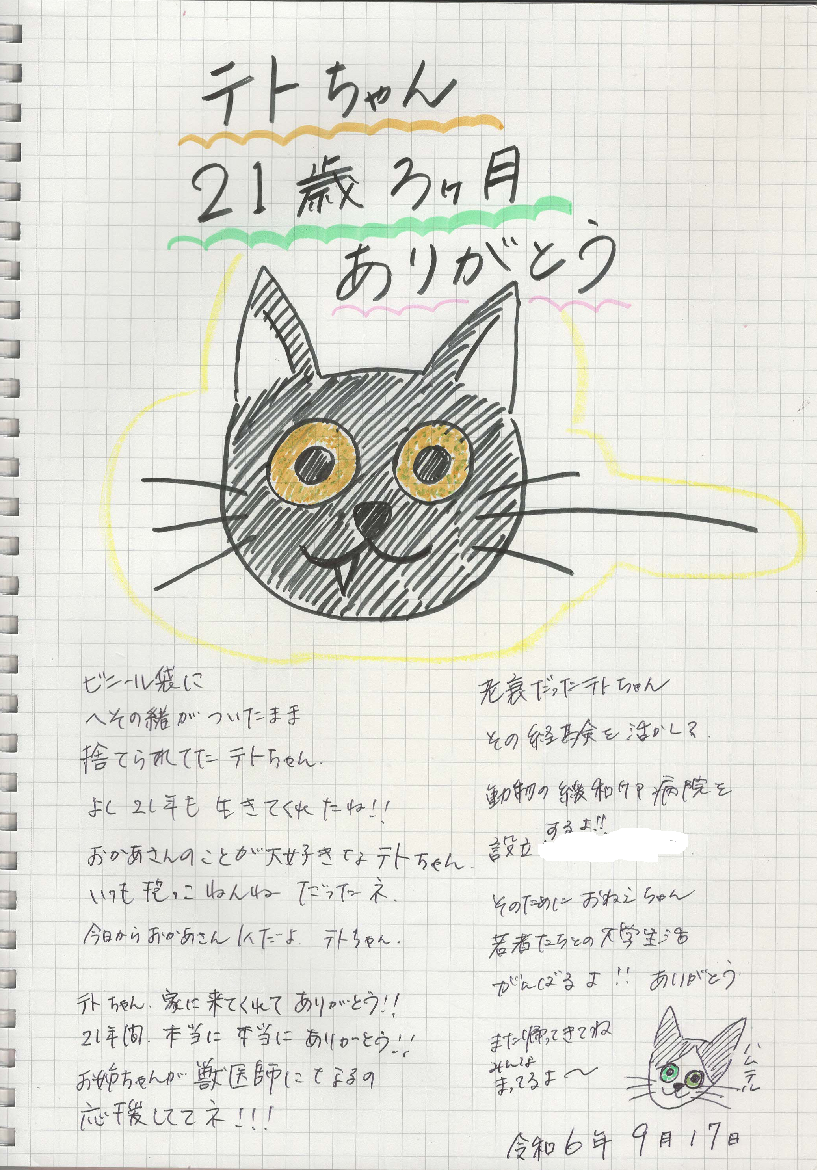 テトちゃん
21歳3ヶ月
ありがとう
ビニール袋に
へその緒がついたまま
捨てられてた テトちゃん.
よく 21年も 生きてくれたね!!
おかあさんのことが大好きなテトちゃん.
いつも抱っこねんね だったネ.
今日からおかあさん1人だよ. テトちゃん.
テトちゃん. 家に来てくれて ありがとう!!
21年間. 本当に 本当に ありがとう!!
お姉ちゃんが 獣医師になるの
応援しててネ!!!
老衰だったテトちゃん
その経験を活かして.
動物の緩和ケア病院を
設立するよ!!
そのために おねえちゃん
若者たちとの大学生活
がんばるよ!! ありがとう
また帰ってきてね
みんな
まってるよ〜
ハムテル
令和6年 9月17日